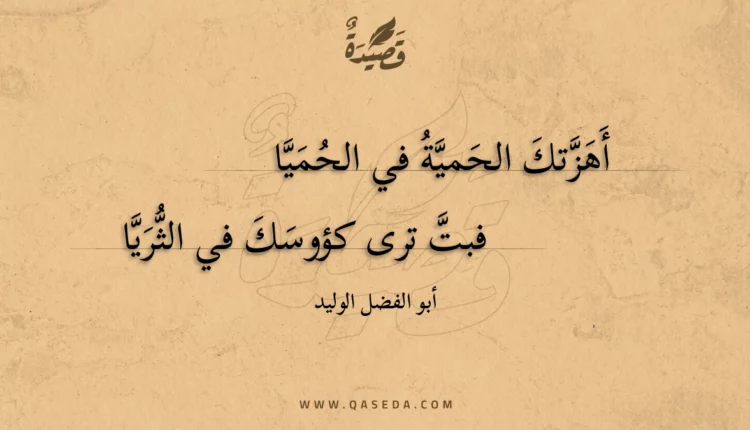 قَصِيْدَةٌ
أَهَزَّتكَ الحَميَّةُ في الحُمَيَّا
فبتَّ ترى كؤوسَكَ في الثُّرَيَّا
أبو الفضل الوليد
WWW.QASEDA.COM